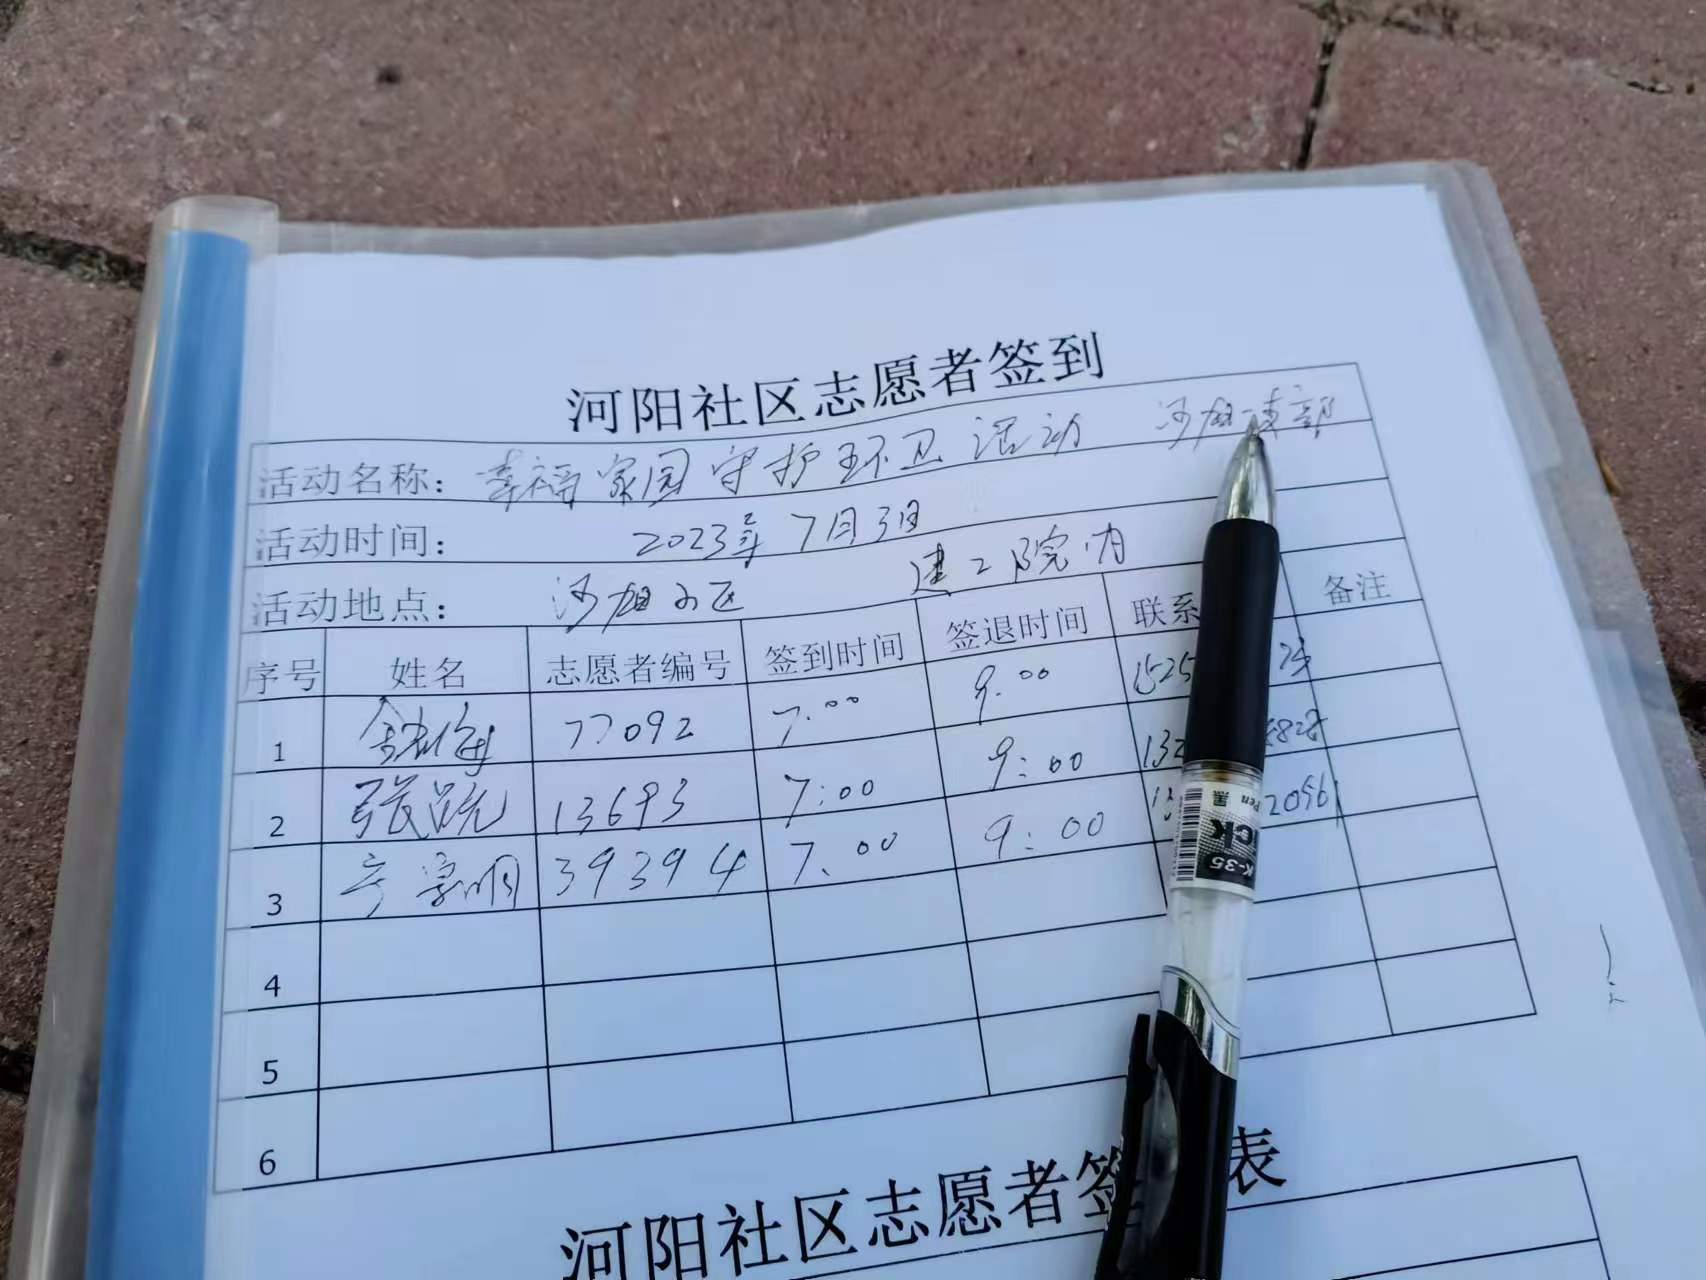 河阳社区志愿者签到
活动名称：幸福家园守护环卫活动
活动时间：2023年7月3日
活动地点：沙姐小区 建工院内
序号 姓名 志愿者编号 签到时间 签退时间 联系 备注
1 77092 7:00 9:00
2 13693 7:00 9:00
3 39394 7:00 9:00
4
5
6
河阳社区志愿者签 表
K-35